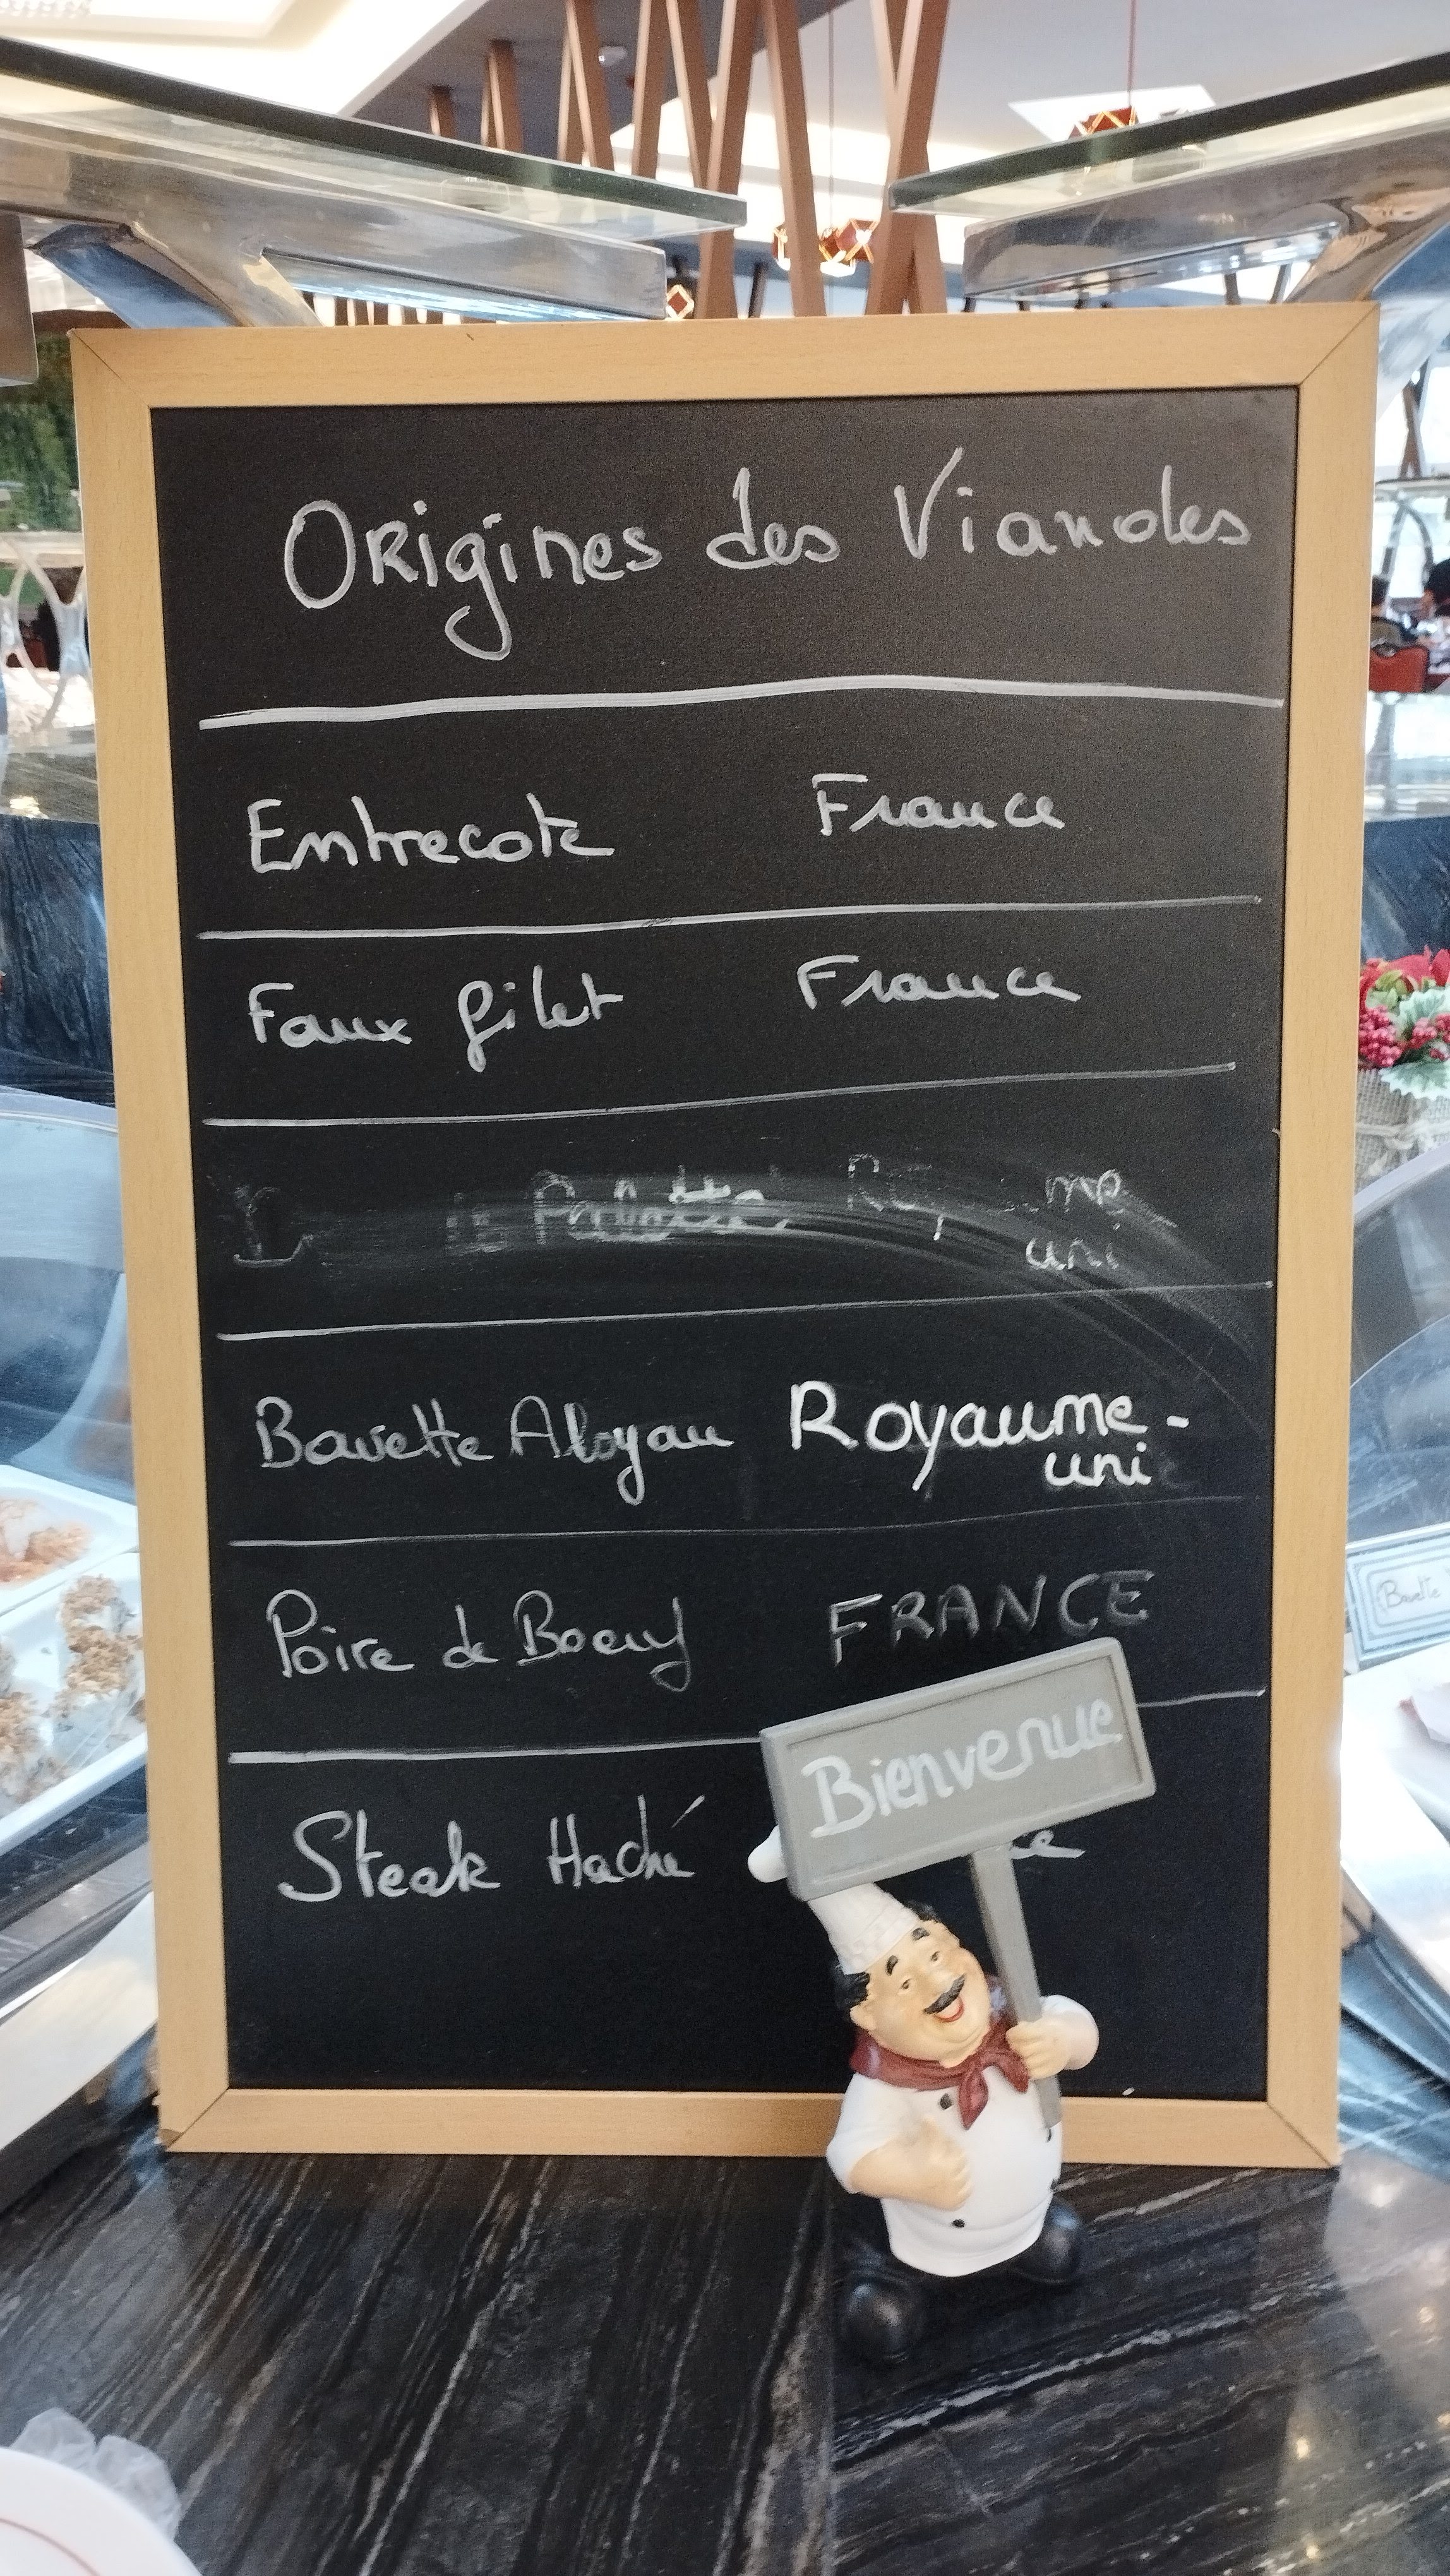 Origines des Viandes
Entrecote France
Faux filet France
Royaume
uni
Bavette Aloyau Royaume-
uni
Poire de Boeuf FRANCE
Bienvenue
Steak Haché
Bavette